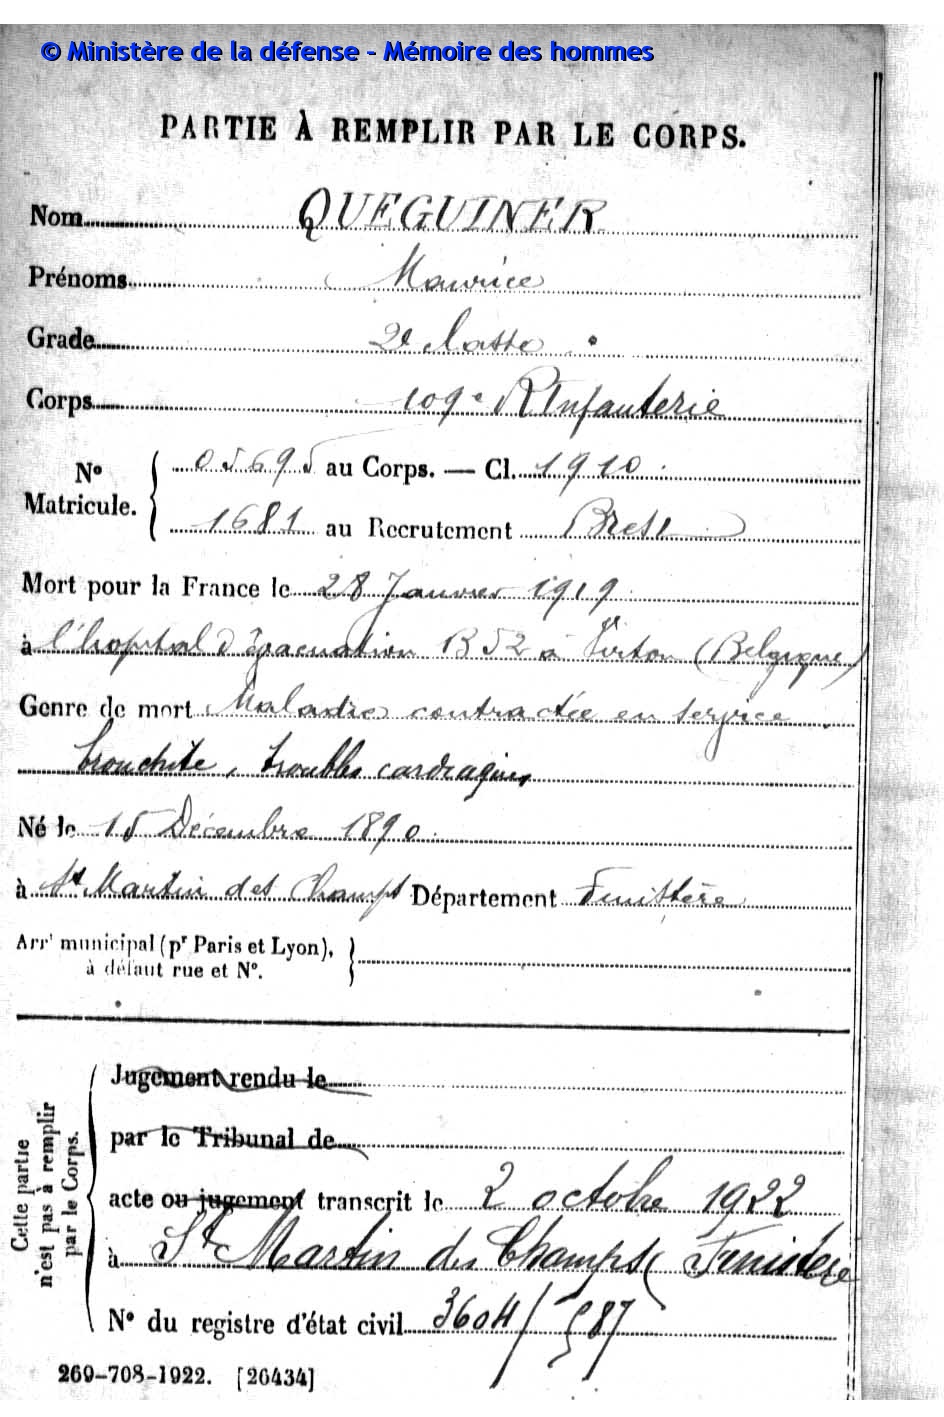 © Ministère de la défense - Mémoire des hommes
PARTIE À REMPLIR PAR LE CORPS.
Nom QUEGUINER
Prénoms Maurice
Grade 2e Classe
Corps 109e R Infanterie
N° Matricule. 05695 au Corps. — Cl. 1910
1681 au Recrutement Brest
Mort pour la France le 28 Janvier 1919
à l'hopital d'évacuation B52 à Virton (Belgique)
Genre de mort Maladie contractée en service
bronchite, troubles cardiaques
Né le 15 Décembre 1890
à St Martin des Champs Département Finistère
Arrt municipal (pr Paris et Lyon),
à défaut rue et N°.
Cette partie n'est pas à remplir par le Corps.
Jugement rendu le
par le Tribunal de
acte ou jugement transcrit le 2 octobre 1922
à St Martin des Champs (Finistère
N° du registre d'état civil 3604/587
269-708-1922. [26434]